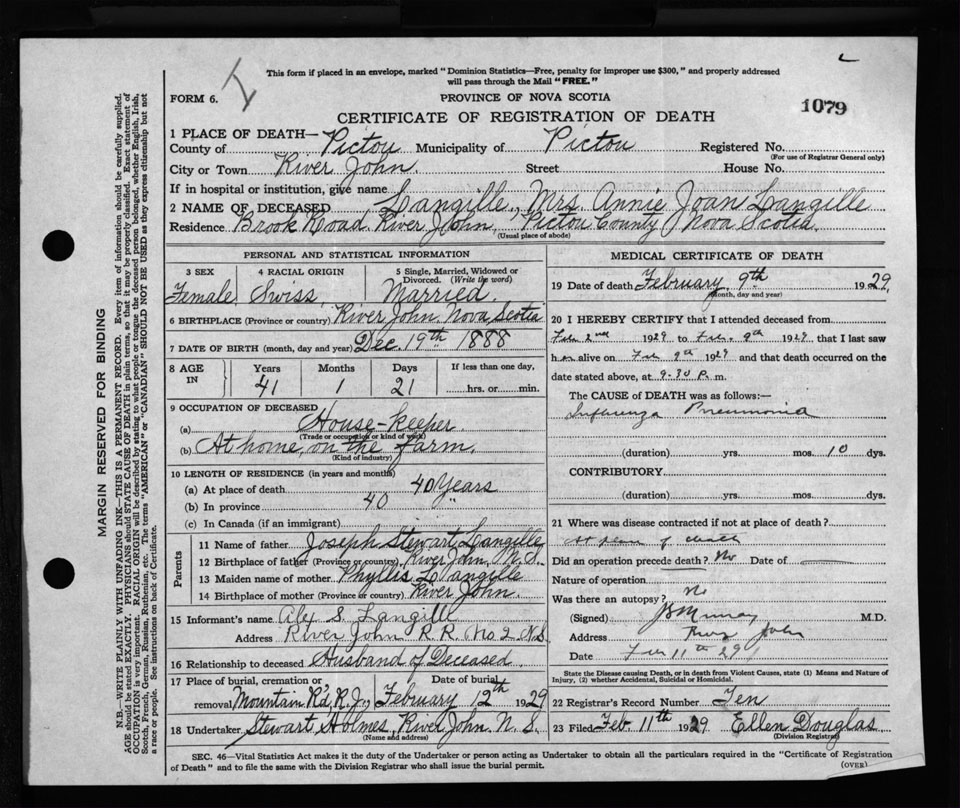 This form if placed in an envelope, marked "Dominion Statistics—Free, penalty for improper use $300," and properly addressed
will pass through the Mail "FREE."
FORM 6.
PROVINCE OF NOVA SCOTIA
1079
CERTIFICATE OF REGISTRATION OF DEATH
1 PLACE OF DEATH—
County of Pictou Municipality of Pictou Registered No.
(For use of Registrar General only)
City or Town River John. Street House No.
If in hospital or institution, give name
2 NAME OF DECEASED Langille, Mrs. Annie Joan Langille
Residence Brook Road River John, Pictou County Nova Scotia.
(Usual place of abode)
PERSONAL AND STATISTICAL INFORMATION
3 SEX 4 RACIAL ORIGIN 5 Single, Married, Widowed or Divorced. (Write the word)
Female Swiss Married.
6 BIRTHPLACE (Province or country) River John, Nova Scotia
7 DATE OF BIRTH (month, day and year) Dec. 19th 1888
8 AGE IN Years Months Days If less than one day,
41 1 21 hrs. or min.
9 OCCUPATION OF DECEASED
(a) House-keeper.
(Trade or occupation or kind of work)
(b) At home, on the farm.
(Kind of industry)
10 LENGTH OF RESIDENCE (in years and months)
(a) At place of death 40 Years
(b) In province 40 "
(c) In Canada (if an immigrant)
Parents
11 Name of father Joseph Stewart Langille
12 Birthplace of father (Province or country) River John, N.S.
13 Maiden name of mother Phyllis Langille
14 Birthplace of mother (Province or country) River John.
15 Informant's name Alex S. Langille
Address River John R.R. No 2 N.S.
16 Relationship to deceased Husband of Deceased
17 Place of burial, cremation or removal, Mountain R'd, R.J., Date of burial February 12th 1929
18 Undertaker Stewart Holmes, River John N.S.
(Name and address)
MEDICAL CERTIFICATE OF DEATH
19 Date of death February 9th 1929
(month, day and year)
20 I HEREBY CERTIFY that I attended deceased from
Feb 2nd 1929 to Feb. 9th 1929 that I last saw
her alive on Feb 9th 1929 and that death occurred on the
date stated above, at 9.30 P. m.
The CAUSE of DEATH was as follows:
Influenza Pneumonia
(duration) yrs. mos. 10 dys.
CONTRIBUTORY
(duration) yrs. mos. dys.
21 Where was disease contracted if not at place of death?
At place of death
Did an operation precede death? No Date of
Nature of operation
Was there an autopsy? No
(Signed) Murray M.D.
Address River John
Date Feb 11th 29
State the Disease causing Death, or in death from Violent Causes, state (1) Means and Nature of
Injury, (2) whether Accidental, Suicidal or Homicidal.
22 Registrar's Record Number Ten
23 Filed Feb. 11th 1929 Ellen Douglas
(Division Registrar)
SEC. 46—Vital Statistics Act makes it the duty of the Undertaker or person acting as Undertaker to obtain all the particulars required in the "Certificate of Registration
of Death" and to file the same with the Division Registrar who shall issue the burial permit.
(OVER)
MARGIN RESERVED FOR BINDING
N.B.—WRITE PLAINLY WITH UNFADING INK—THIS IS A PERMANENT RECORD. Every item of information should be carefully supplied.
AGE should be stated EXACTLY. PHYSICIANS should STATE CAUSE OF DEATH in plain terms, so that it may be properly classified. Exact statement of
OCCUPATION is very important. RACIAL ORIGIN will be described by stating to what people or tongue the deceased person belonged, whether English, Irish,
Scotch, French, German, Russian, Ruthenian, etc. The terms "AMERICAN" or "CANADIAN" SHOULD NOT BE USED as they express citizenship but not
a race or people. See instructions on back of Certificate.